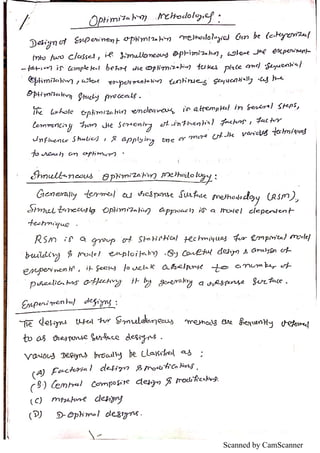 Optimization Methodologies :
Design of Experiment optimization methodologies Can be Categorized
into two Classes, ie Simultaneous optimization, where the experiment-
-tation is Completed before the optimization takes place and Sequential
optimization, where experimentation Continues Sequentially as the
Optimization Study proceeds.
The whole optimization endeavour is attempted in Several Steps,
Commencing from the Screening of influential factors, factor
influence Studies, & applying one or more of the various techniques
to reach an optimum.
Simultaneous Optimization Methodology :
Generally termed as Response Surface Methodology (RSM),
Simultaneously Optimization approach is a model dependent
technique.
RSM is a group of Statistical techniques for empirical model
building & Model exploitation. By Careful design & analysis of
experiments, it seeks to relate a response to a number of
affecting it by generating a response Surface.
Experimental designs :
The designs used for Simultaneous methods are frequently referred
to as response Surface designs.
Various Designs broadly be Classified as ;
(A) Factorial design & modifications,
(B) Central Composite design & modifications.
(C) mixture designs
(D) D-Optimal designs.
Scanned by CamScanner